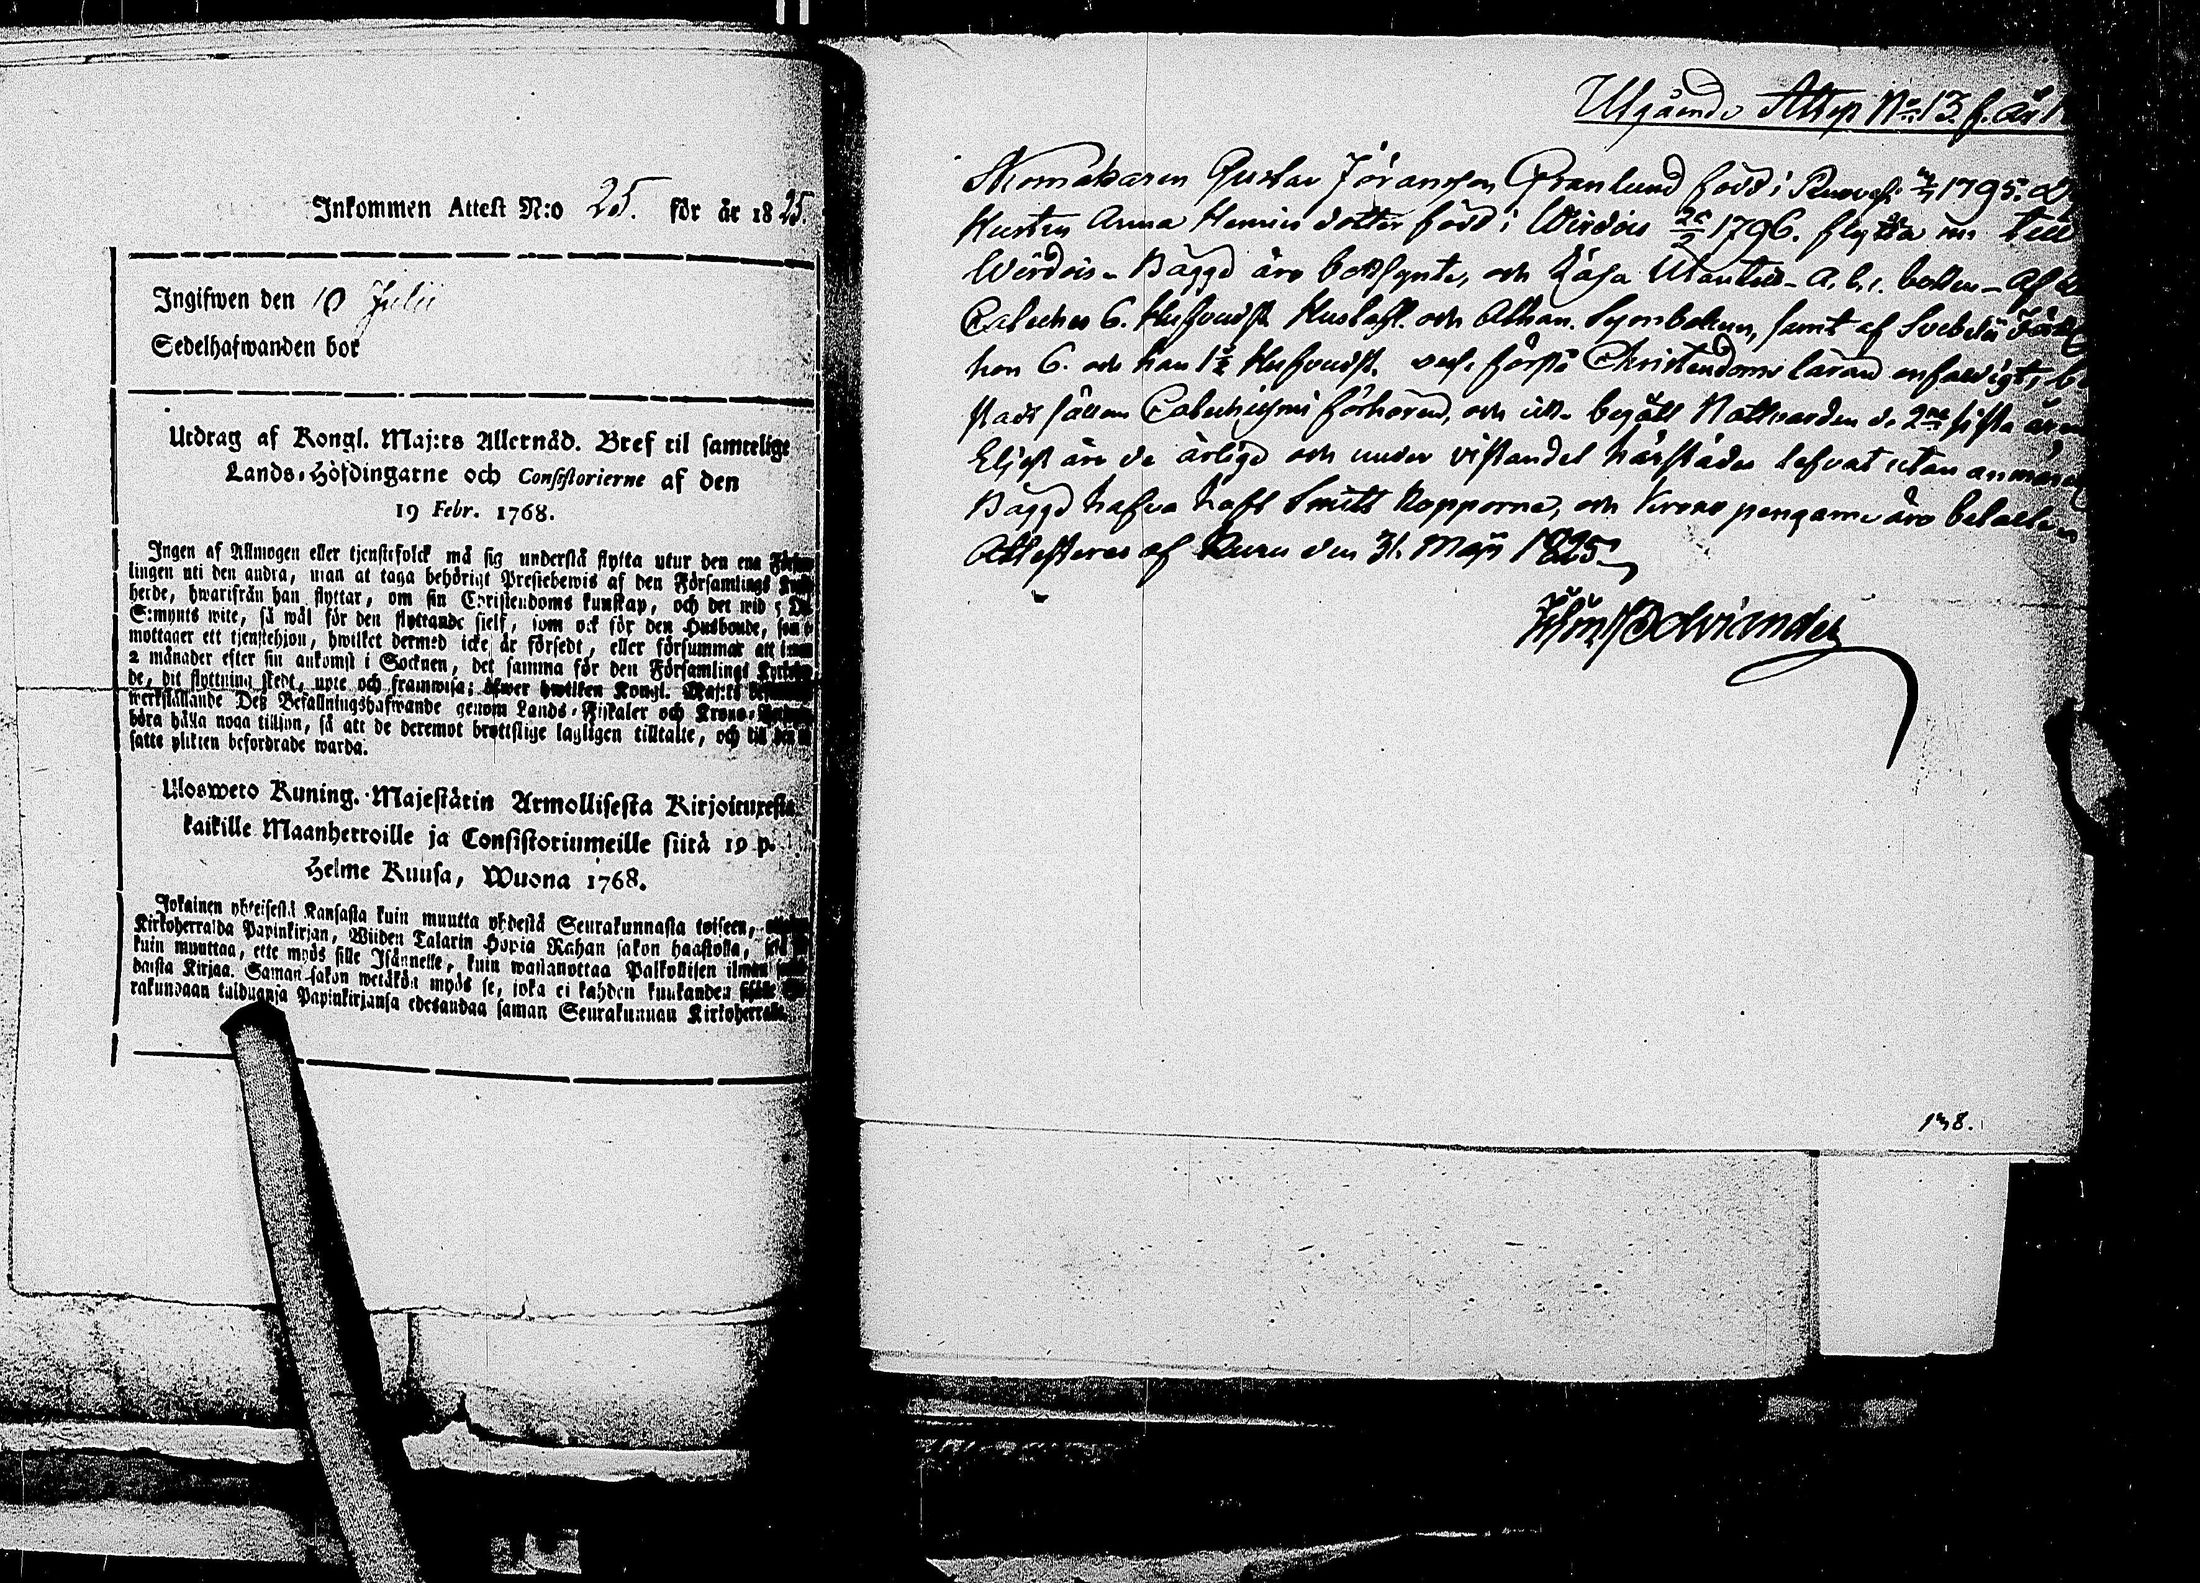 Inkommen Attest N:o 25. för år 1825.
Ingifwen den 10 Julii
Sedelhafwanden bor
Utdrag af Kongl. Maj:ts Allernåd. Bref til samtelige
Lands-Höfdingarne och Consistorierne af den
19 Febr. 1768.
Ingen af Allmogen eller tjenstefolck må sig understå flytta utur den ena Försam
lingen uti den andra, utan at taga behörigt Prestebewis af den Församlings Kyrko
herde, hwarifrån han flyttar, om sin Christendoms kunskap, och det wid 5 Dal.
S:mynts wite, så wäl för den flyttande sielf, som ock för den Husbonde, som
mottager ett tjenstehjon, hwilket dermed icke är försedt, eller försummar att inom
2 månader efter sin ankomst i Socknen, det samma för den Församlings Kyrkoher
de, dit flyttning skedt, upte och framwisa; öfwer hwilken Kongl. Maj:ts
werkställande Deß Befallningshafwande genom Lands-Fiskaler och Krono-
böra hålla noga tillsyn, så att de deremot brottslige lagligen tilltalte, och till den
satte plikten befordrade warda.
Ulosweto Kuning. Majestätin Armollisesta Kirjoituxesta
kaikille Maanherroille ja Consistoriumeille siitä 19 p.
Helme Kuusa, Wuona 1768.
Jokainen yhteisestä Kansasta kuin muutta yhdestä Seurakunnasta toiseen,
Kirkoherralda Papinkirjan, Wiiden Talarin Hopia Rahan sakon haastolla,
kuin muuttaa, ette myös sille Isännelle, kuin wastanottaa Palkollisen ilman
daista Kirjaa. Saman sakon wetäkön myös se, joka ei kahden kuukauden sisälle
rakundaan tulduanja Papinkirjansa edesandaa saman Seurakunnan Kirkoherralle.
Utgående Attest No 13. f. år 1
Skomakaren Gustav Jöransson Granlund född i Ruovesi 1795.
Hustru Anna Henrics dotter född i Wirdois 1796. flytta nu till
Wirdois. Bägge äro boksynte, och läsa utantill a. b. c. boken. Af
Cateches 6. Hufvudst. Hustafl. och Athan. Symbolum, samt af Svebelii
hon 6. och han 1½ Hufvudst. förstå Christendoms läran enfaldigt,
Catechismi förhören, och begått Nattvarden de 2ne sista åren
Eljest äro de ärlige och under vistandet härstädes lefvat utan anmärk
Bägge hafva haft Smitt Kopporne, och Krono pengarne äro betalte.
Attesteras af Kuru den 31. Maji 1825.
138.